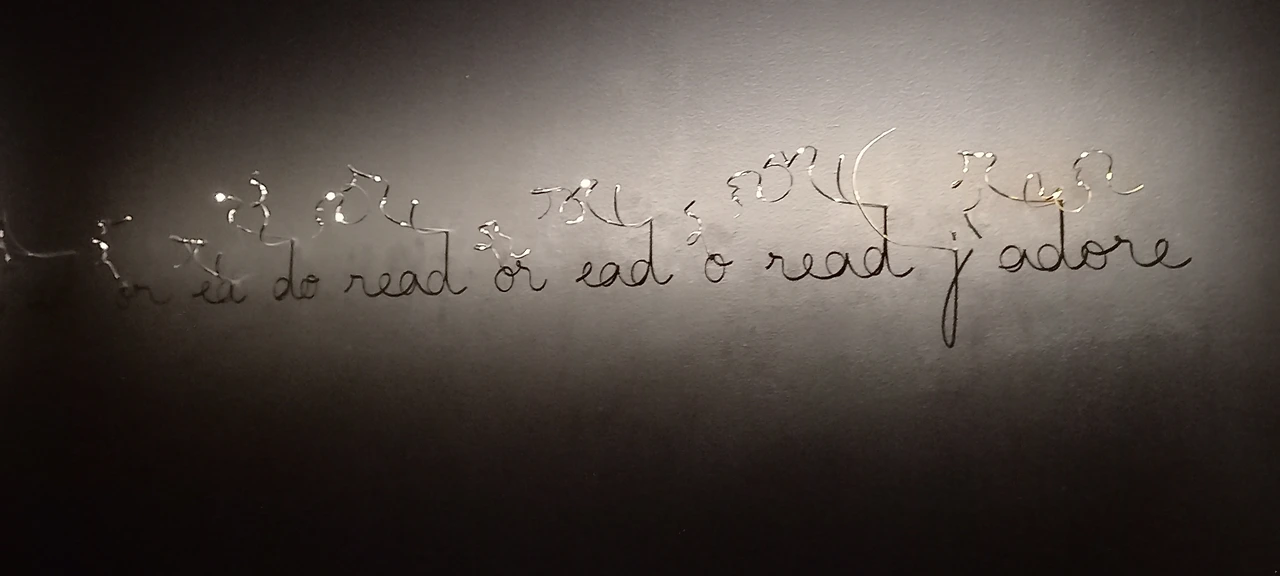 or ea do read or ead o read j'adore